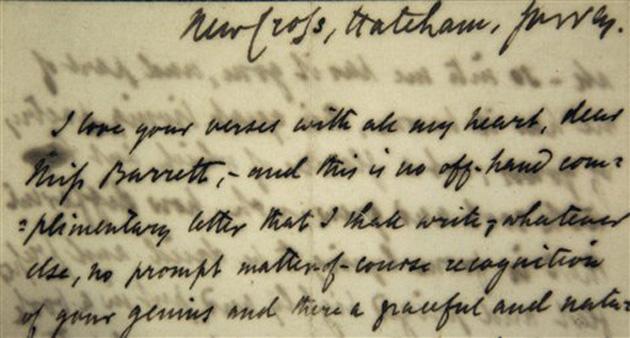 New Cross, Hatcham, Surrey.
I love your verses with all my heart, dear
Miss Barrett, - and this is no off-hand com=
=plimentary letter that I shall write, - whatever
else, no prompt matter-of-course recognition
of your genius and there a graceful and natu=